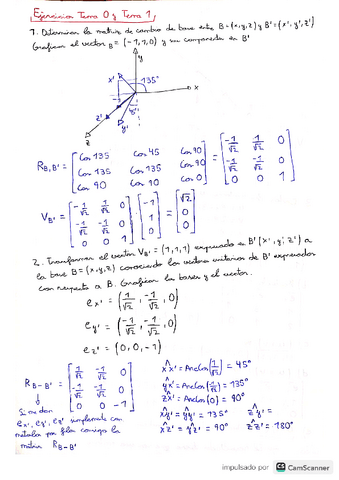 Ejercicios Tema 0 y Tema 1
1. Determinar la matriz de cambio de base entre B=(x,y,z) y B'=(x',y',z')
Graficar el vector B=(-1,1,0) y sus componentes en B'
y
x'
135°
x
z'
y'
z
R B,B' = [cos 135 cos 45 cos 90
cos 135 cos 135 cos 90
cos 90 cos 90 cos 0] = [-1/√2 1/√2 0
-1/√2 -1/√2 0
0 0 1]
V B' = [-1/√2 1/√2 0
-1/√2 -1/√2 0
0 0 1] · [-1
1
0] = [√2
0
0]
2. Transformar el vector V B' = (1,1,1) expresado en B'(x',y',z') a
la base B=(x,y,z) conociendo los vectores unitarios de B' expresados
con respecto a B. Graficar las bases y el vector.
e x' = (1/√2, -1/√2, 0)
e y' = (-1/√2, -1/√2, 0)
e z' = (0,0,-1)
R B-B' = [1/√2 -1/√2 0
-1/√2 -1/√2 0
0 0 -1]
Si me dan
e x', e y', e z' simplemente con
meterlos por filas consigo la
matriz R B-B'
x̂x' = Arccos(1/√2) = 45°
ŷx' = Arccos(-1/√2) = 135°
ẑx' = Arccos(0) = 90°
x̂y' = ŷy' = 135° ẑy' =
x̂z' = ŷz' = 90° ẑz' = 180°
impulsado por CS CamScanner